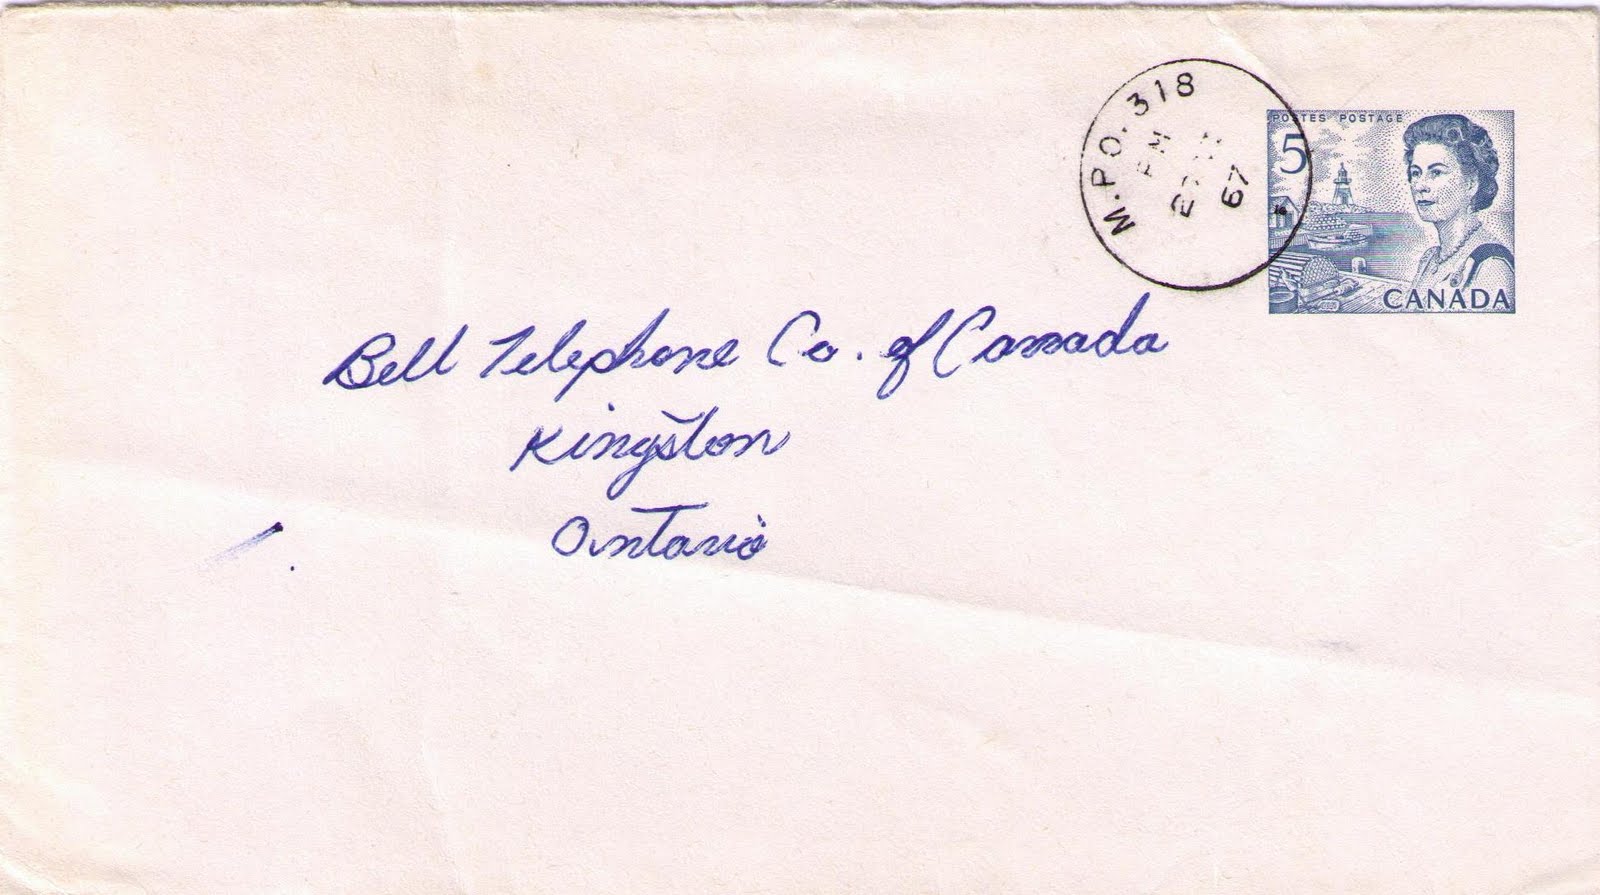 M.P.O. 318
PM
67
POSTES POSTAGE
5
CANADA
Bell Telephone Co. of Canada
Kingston
Ontario